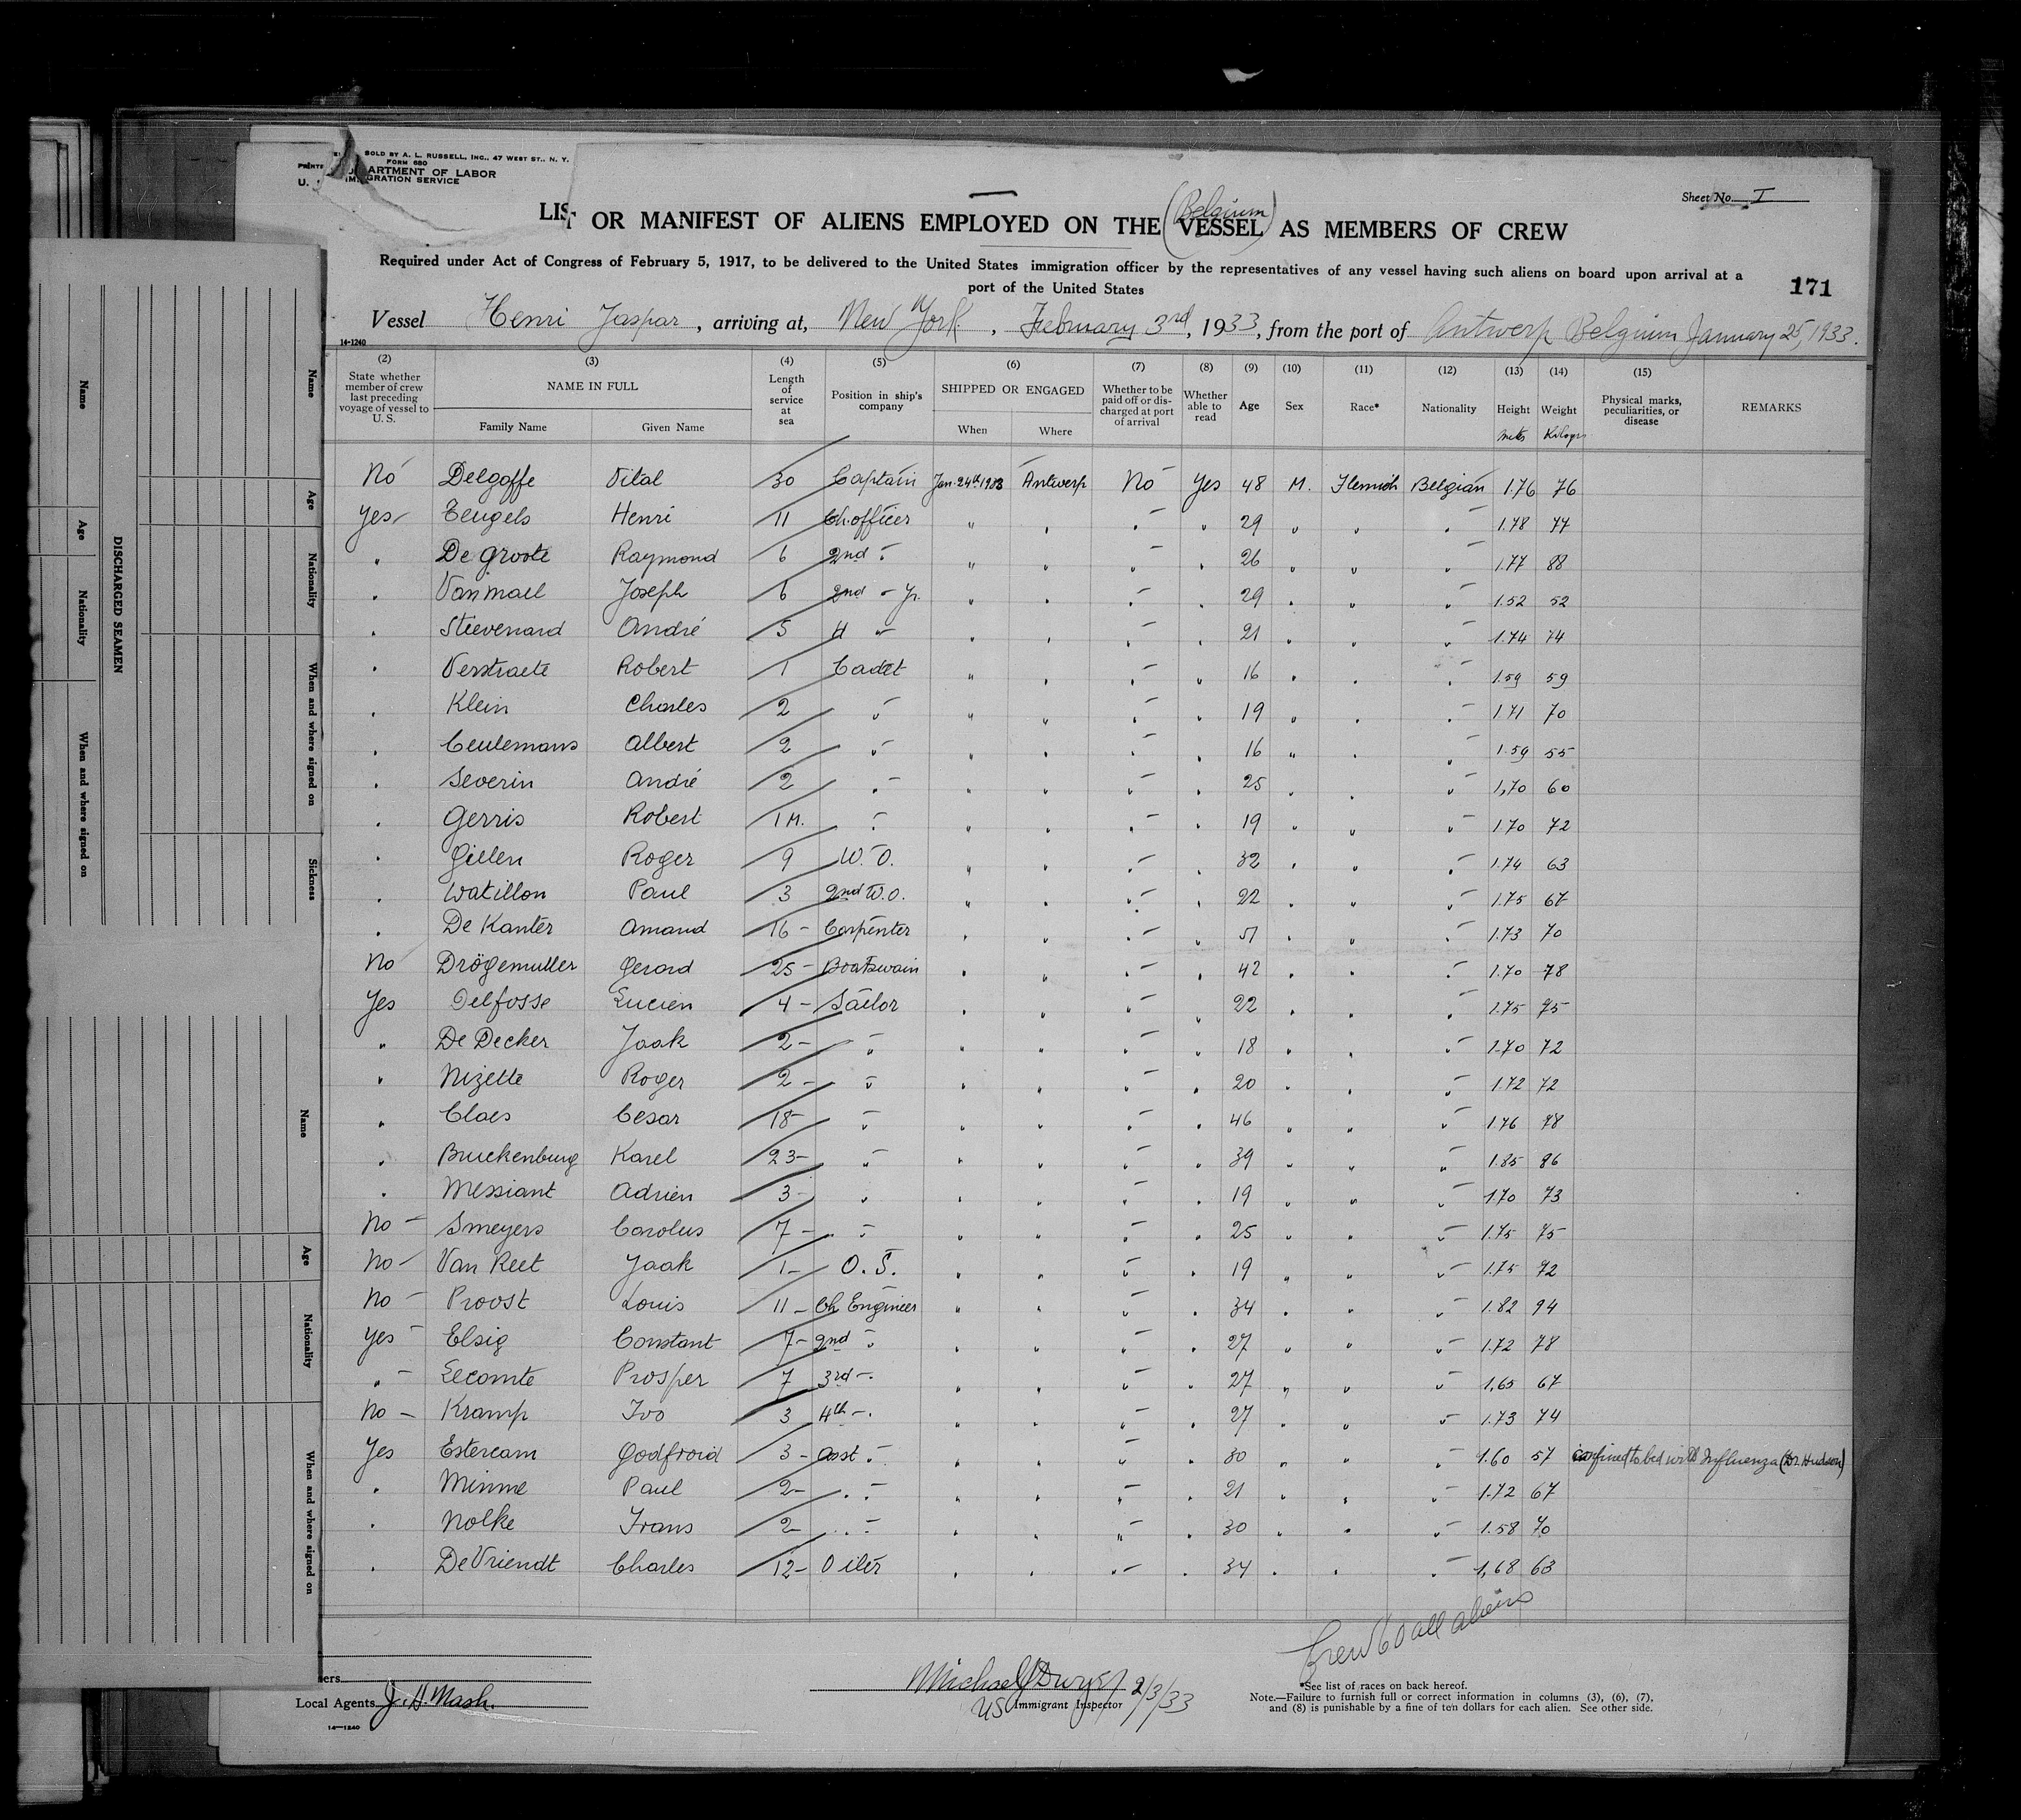 SOLD BY A. L. RUSSELL, INC., 47 WEST ST., N. Y.
FORM 680
ARTMENT OF LABOR
IMMIGRATION SERVICE
Sheet No. I
(Belgium)
LIST OR MANIFEST OF ALIENS EMPLOYED ON THE VESSEL AS MEMBERS OF CREW
Required under Act of Congress of February 5, 1917, to be delivered to the United States immigration officer by the representatives of any vessel having such aliens on board upon arrival at a
port of the United States
171
Vessel Henri Jaspar, arriving at, New York, February 3rd, 1933, from the port of Antwerp Belgium January 25, 1933.
14-1240
(2) (3) (4) (5) (6) (7) (8) (9) (10) (11) (12) (13) (14) (15)
State whether member of crew last preceding voyage of vessel to U. S. NAME IN FULL Length of service at sea Position in ship's company SHIPPED OR ENGAGED Whether to be paid off or discharged at port of arrival Whether able to read Age Sex Race* Nationality Height Weight Physical marks, peculiarities, or disease REMARKS
Family Name Given Name When Where
No Delgoffe Vital 30 Captain Jan. 24th 1933 Antwerp No Yes 48 M. Flemish Belgian 1.76 76
Yes Teugels Henri 11 Ch. officer " " " " 29 " " " 1.78 77
" De Groote Raymond 6 2nd " " " " " 26 " " " 1.77 88
" Van mael Joseph 6 2nd " Jr. " " " " 29 " " " 1.52 52
" Stievenard André 5 4 " " " " " 21 " " " 1.74 74
" Verstraete Robert 1 Cadet " " " " 16 " " " 1.59 59
" Klein Charles 2 " " " " " 19 " " " 1.71 70
" Ceulemans Albert 2 " " " " " 16 " " " 1.59 55
" Severin André 2 " " " " " 25 " " " 1,70 60
" Gerris Robert 1 M. " " " " " 19 " " " 1.70 72
" Gielen Roger 9 W. O. " " " " 32 " " " 1.74 63
" Watillon Paul 3 2nd W.O. " " " " 22 " " " 1.75 67
" De Kanter Amand 16 - Carpenter " " " " 51 " " " 1.73 70
No Drögemuller Gerard 25 - Boatswain " " " " 42 " " " 1.70 78
Yes Delfosse Lucien 4 - Sailor " " " " 22 " " " 1.75 75
" De Decker Jaak 2 - " " " " " 18 " " " 1.70 72
" Nizette Roger 2 - " " " " " 20 " " " 1.72 72
" Claes Cesar 18 - " " " " " 46 " " " 1.76 78
" Bruckenburg Karel 23 - " " " " " 39 " " " 1.85 86
" Messiant Adrien 3 - " " " " " 19 " " " 1.70 73
No - Smeyers Carolus 7 - " " " " " 25 " " " 1.75 75
No - Van Reet Jaak 1 - O. S. " " " " 19 " " " 1.75 72
No - Proost Louis 11 - Ch Engineer " " " " 34 " " " 1.82 94
Yes - Elsig Constant 7 - 2nd " " " " " 27 " " " 1.72 78
" - Lecomte Prosper 7 3rd " " " " " 27 " " " 1,65 67
No - Kramp Ivo 3 4th " " " " " 27 " " " 1.73 74
Yes Estercam Godfroid 3 - Asst " " " " " 30 " " " 1.60 57 confined to bed with Influenza (Dr. Hudson)
" Minme Paul 2 - " " " " " " 21 " " " 1.72 67
" Nolke Frans 2 - " " " " " " 30 " " " 1.58 70
" De Vriendt Charles 12 - Oiler " " " " 34 " " " 1,68 63
Crew 60 all aliens
ers
Local Agents J. H. Mash.
14-1240
Michael J Dwyer 2/3/33
US Immigrant Inspector
*See list of races on back hereof.
Note.—Failure to furnish full or correct information in columns (3), (6), (7),
and (8) is punishable by a fine of ten dollars for each alien. See other side.
DISCHARGED SEAMEN
Name
Age
Nationality
When and where signed on
Name
Age
Nationality
When and where signed on
Sickness
Name
Age
Nationality
When and where signed on